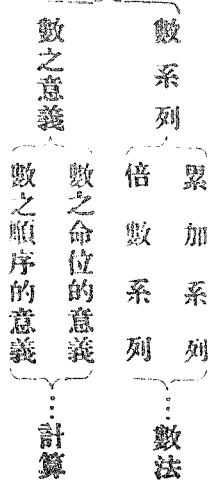 數系列
累加系列
倍數系列
數法
數之意義
數之命位的意義
數之順序的意義
計算